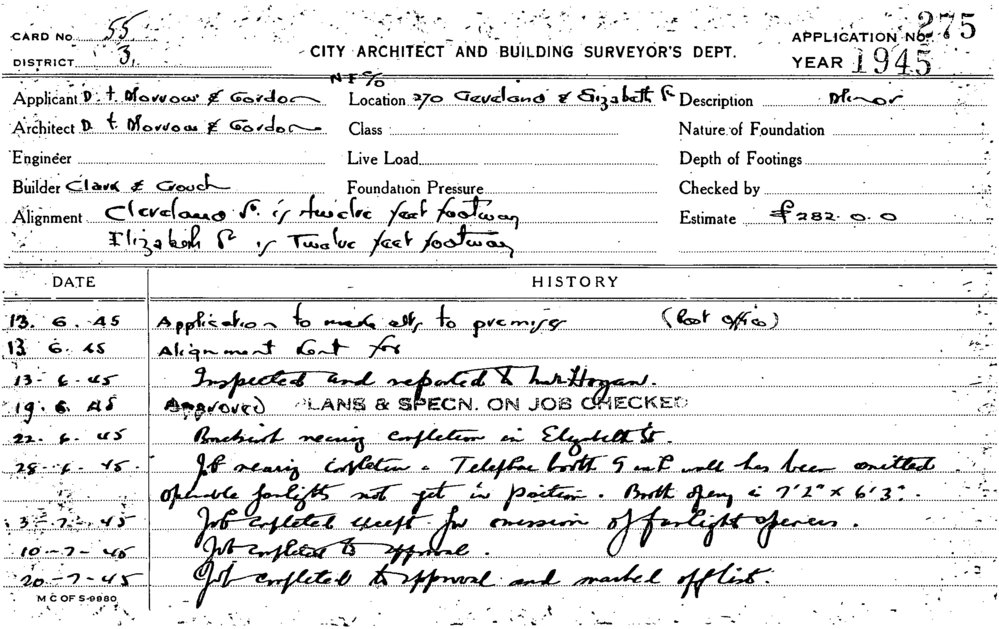 CARD No. 55
DISTRICT 3.
CITY ARCHITECT AND BUILDING SURVEYOR'S DEPT.
APPLICATION No. 275
YEAR 1945
NE c/o
Applicant D. t. Morrow & Gordon Location 270 Cleveland & Elizabeth St Description Minor
Architect D t. Morrow & Gordon Class Nature of Foundation
Engineer Live Load Depth of Footings
Builder Clark & Crouch Foundation Pressure Checked by
Alignment Cleveland St. is twelve feet footway Estimate £282.0.0
Elizabeth St is Twelve feet footway
DATE HISTORY
13. 6. 45 Application to make alts to premises (Post Office)
13 6. 45 Alignment sent for
13- 6-45 Inspected and reported to Mr Hogan.
19. 6. 45 Approved PLANS & SPECN. ON JOB CHECKED
22. 6. 45 nearing completion in Elizabeth St.
28-6-45. Job nearing completion Telephone booth 9 in wall has been omitted
openable fanlights not yet in position. Booth openg is 7'2" x 6'3".
3-7-45 Job completed except for omission of fanlight openers.
10-7-45 Job completed to approval.
20-7-45 Job completed to approval and marked off list.
M C OF S-9980